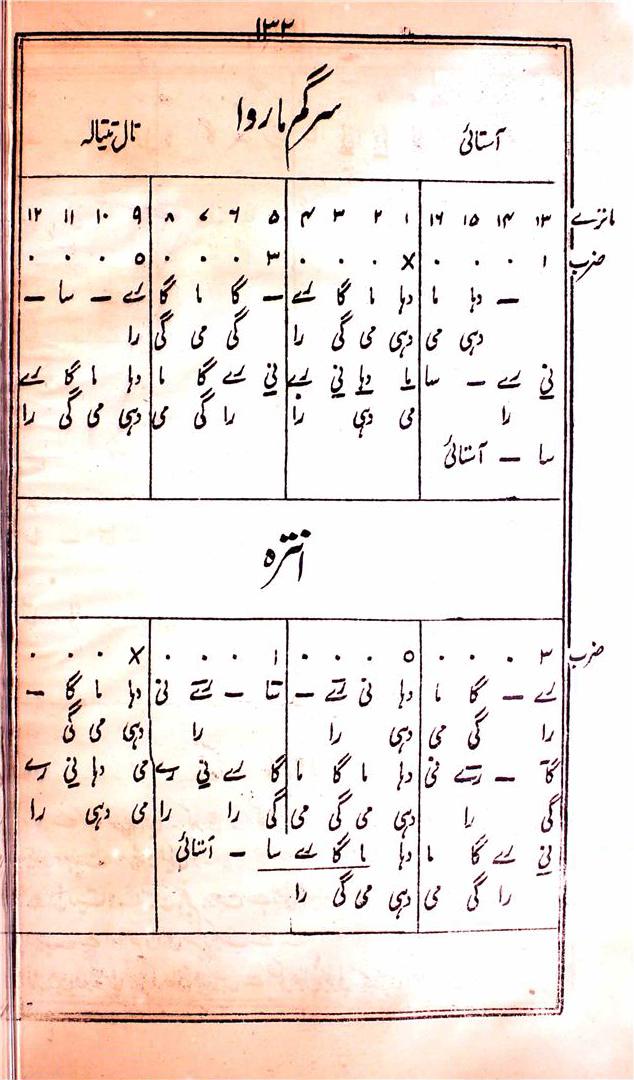 ۱۳۲
سرگم ماروا
آستائی تال تیتالہ
ماترے ۱۳ ۱۴ ۱۵ ۱۶ ۱ ۲ ۳ ۴ ۵ ۶ ۷ ۸ ۹ ۱۰ ۱۱ ۱۲
ضرب ۱ ۰ ۰ ۰ X ۰ ۰ ۰ ۳ ۰ ۰ ۰ ٥ ۰ ۰ ۰
— دہا ما دہا ما گا رے — گا ما گا رے — سا —
دہی می دہی می گی را گی می گی را
نی رے — سا ما دہا نی رے نی رے گا ما دہا ما گا رے
را می دہی را را گی می دہی می گی را
سا — آستائی
انترہ
ضرب ۳ ۰ ۰ ۰ ٥ ۰ ۰ ۰ ۱ ۰ ۰ ۰ X ۰ ۰ ۰
رے — گا ما دہا نی رے — سا — رے نی دہا ما گا —
را گی می دہی را را دہی می گی
گا — رے نی دہا ما گا ما گا رے نی رے می دہا نی رے
گی را دہی می گی می گی را را می دہی را
نی رے گا ما دہا ما گا رے سا — آستائی
را گی می دہی می گی را